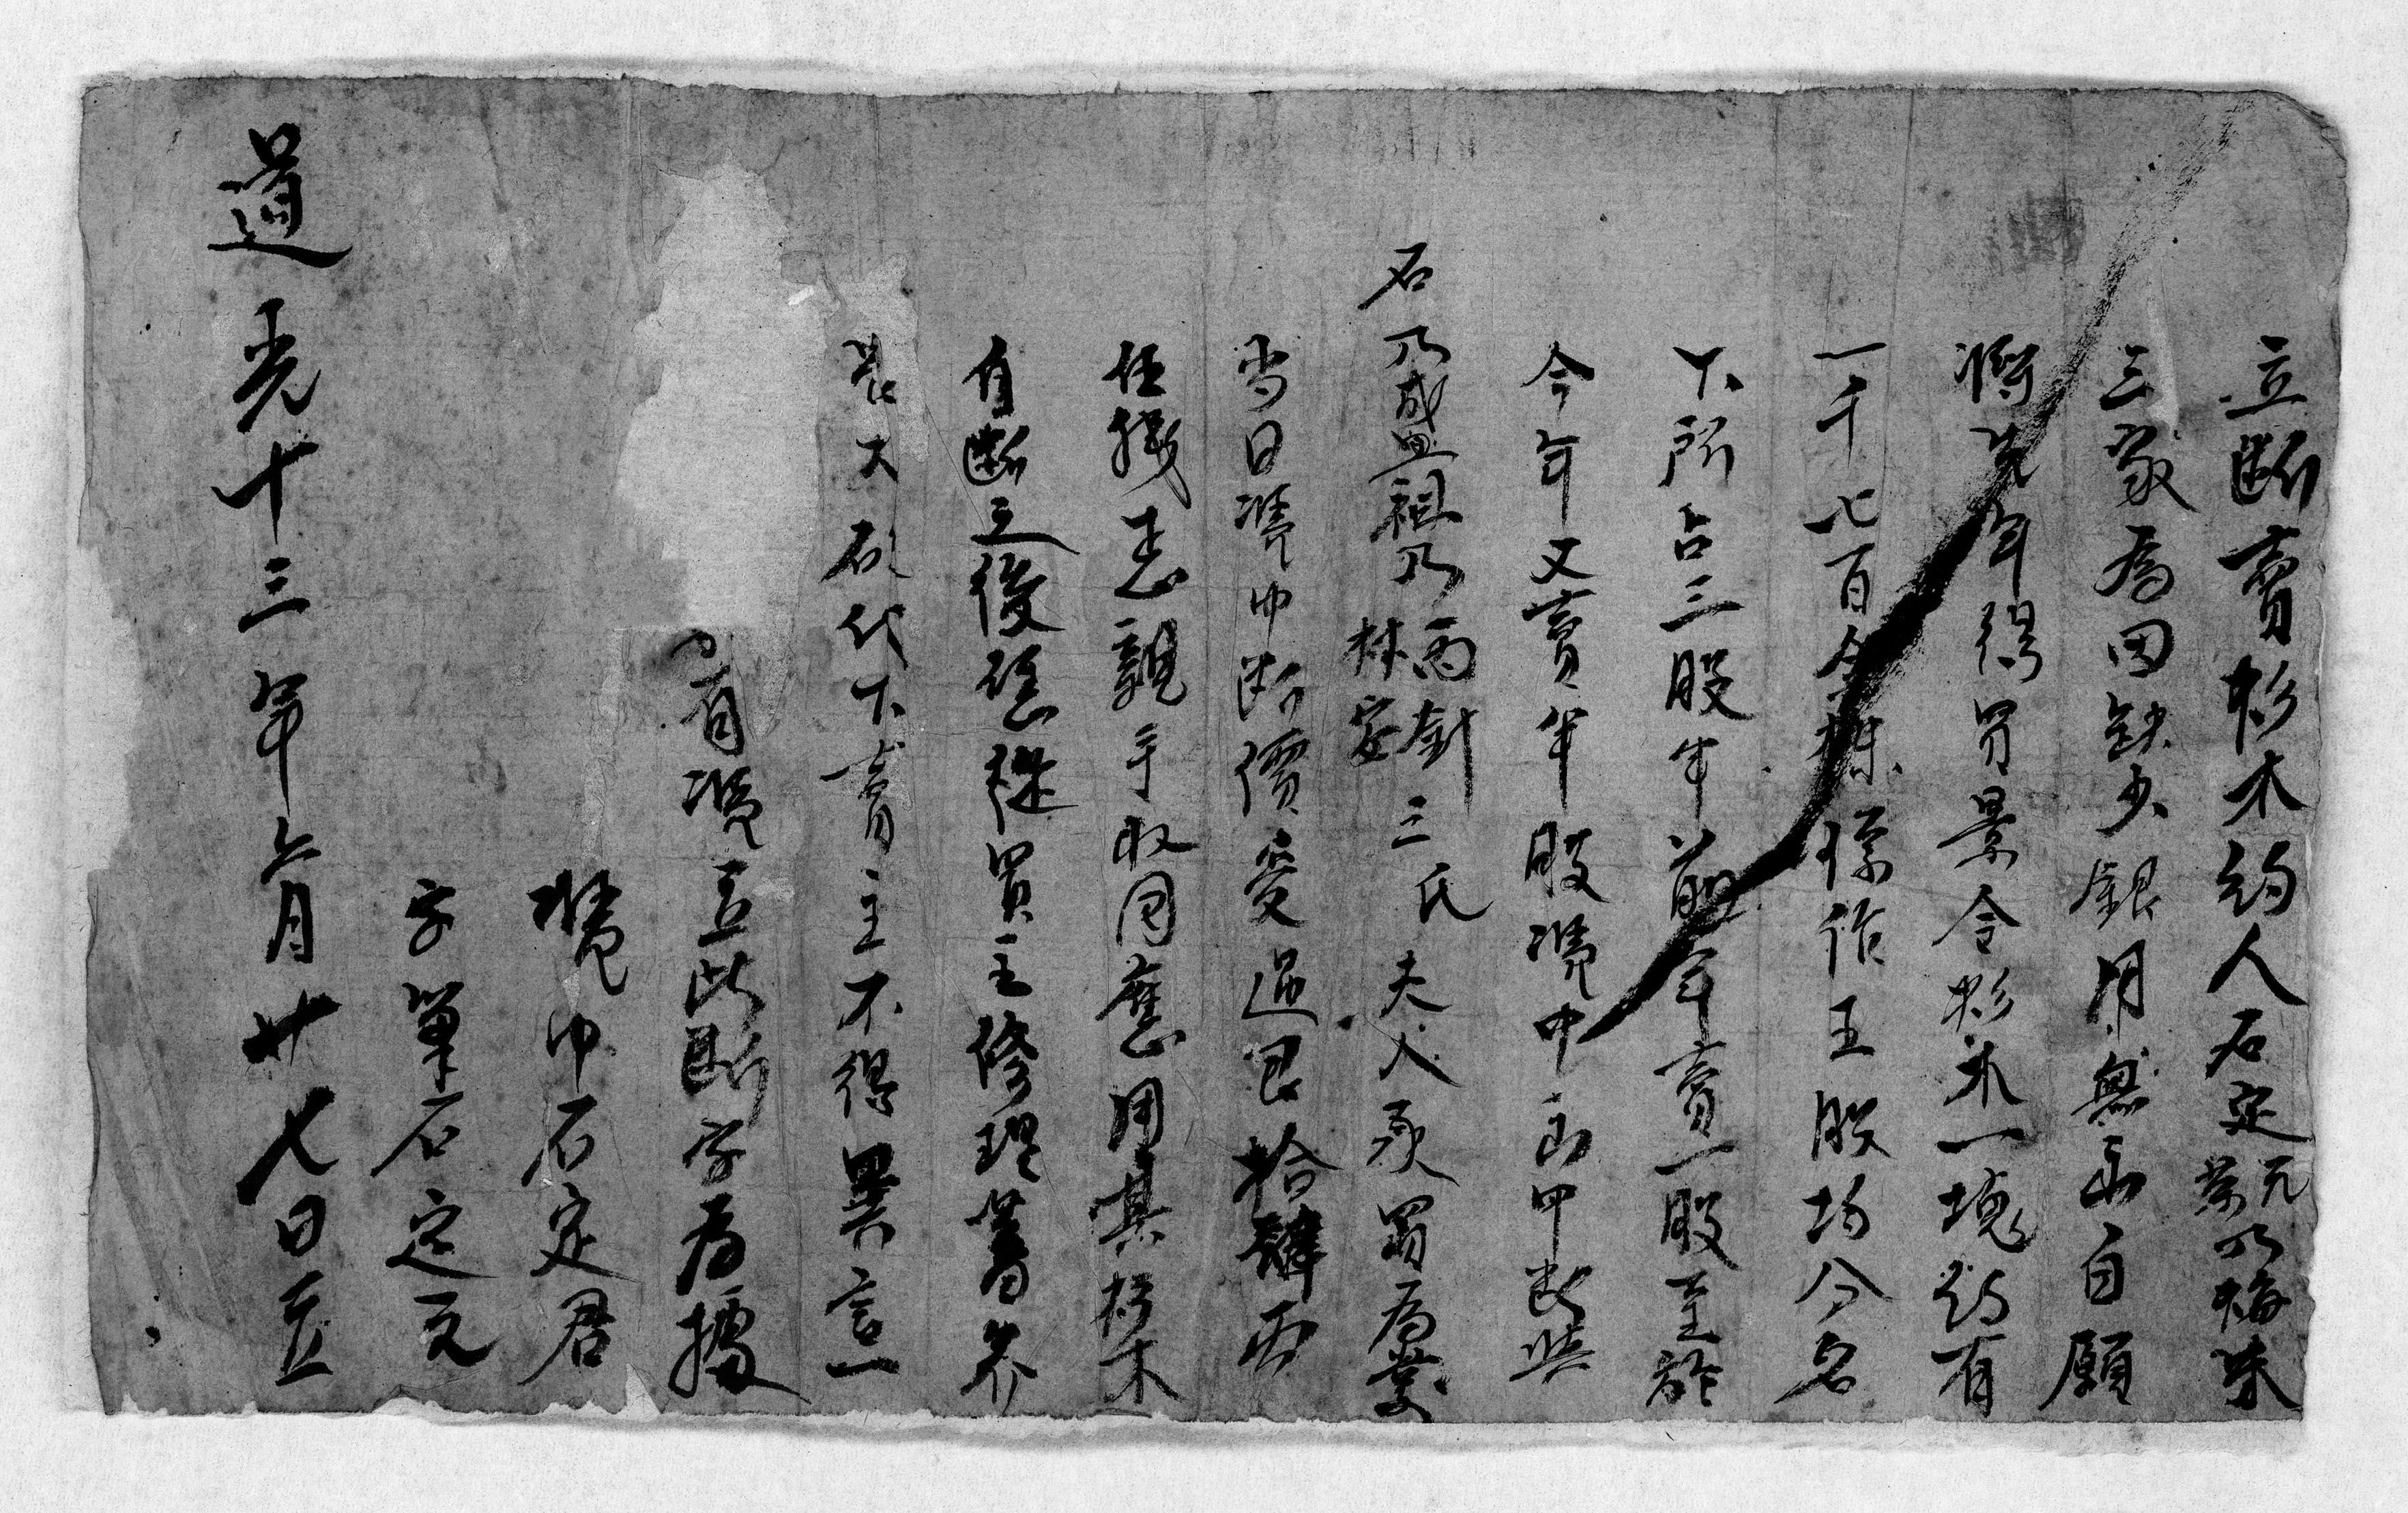 立断賣杉木約人石定元榮乃梅朱
三家爲因缺少銀用無出自願
將先年得買景令杉木一塊約有
一千七百余株原作五股均分名
下所占三股半前年賣一股至於
今年又賣半股憑中出甲断與
石乃成盟祖乃丙針林安三氏夫人承買爲業
当日憑中断價愛過艮拾肆両
任捜 親手收回應用其杉木
自断之後憑從買主修理蓄养
管大砍伐下賣主不得異言一
有憑立此断字为據
憑中石定君
字筆石定元
道光十三年六月廿七日立